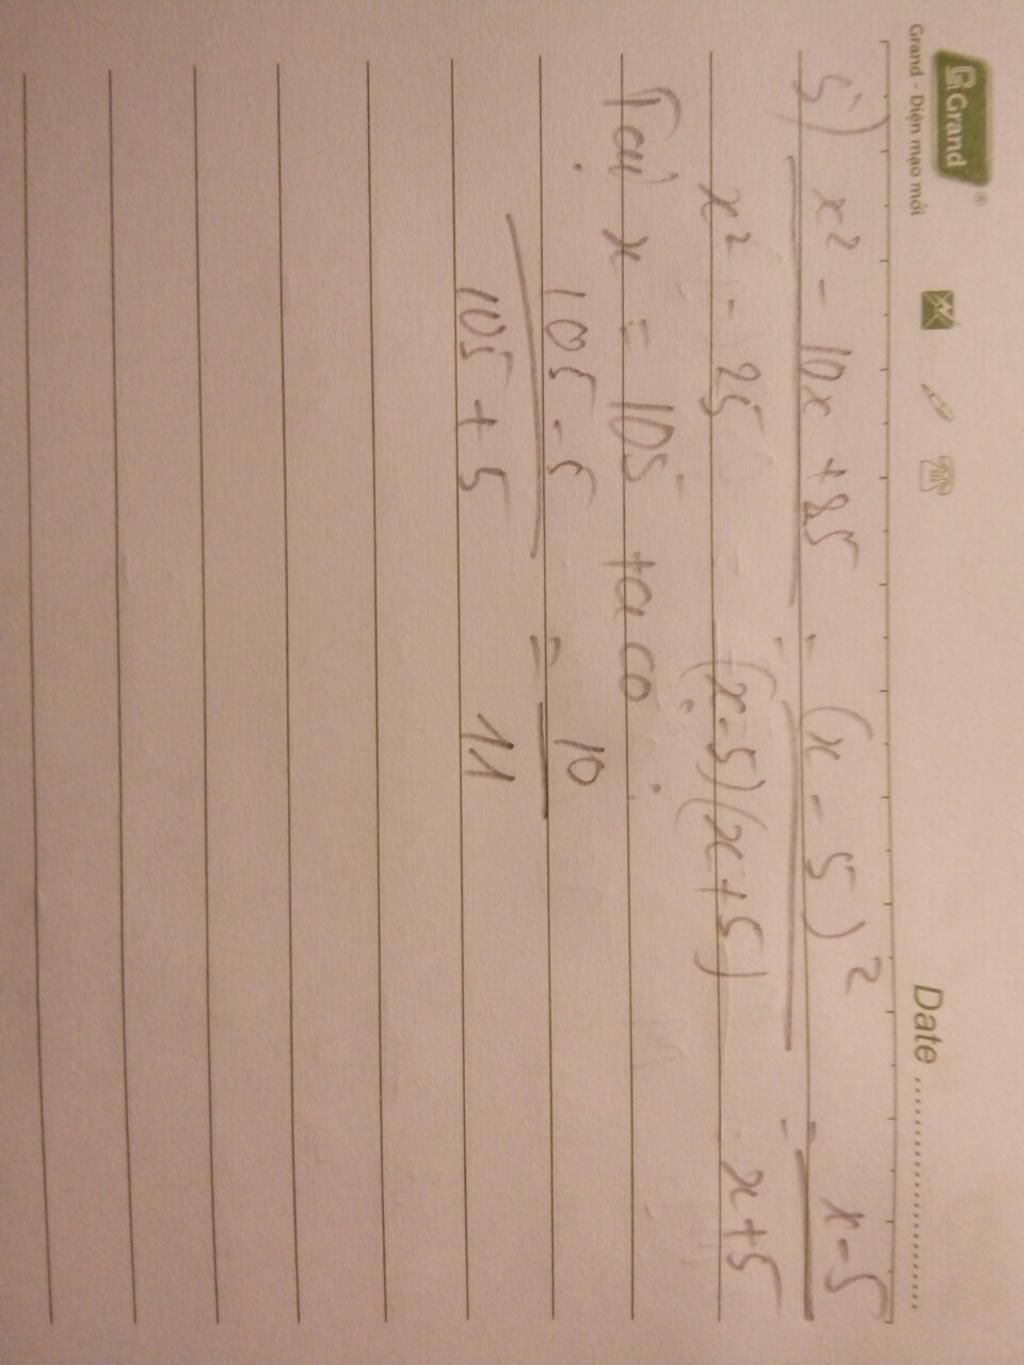 Grand
Grand - Diện mạo mới
Date ..............................
5) x² - 10x + 25 = (x - 5)² = x - 5
x² - 25 (x-5)(x+5) x+5
Tại x = 105 ta có
105 - 5 = 10
105 + 5 11